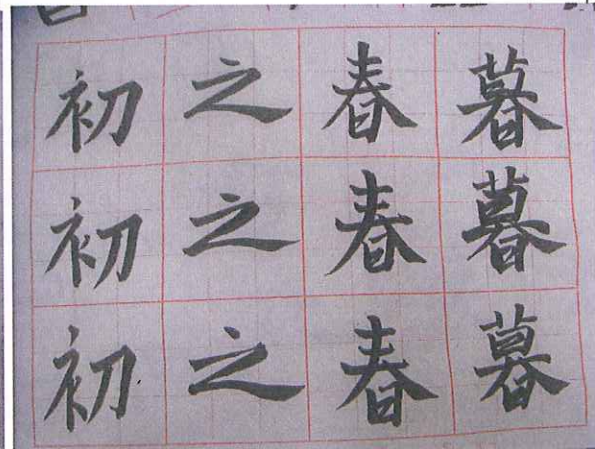 暮春之初
暮春之初
暮春之初